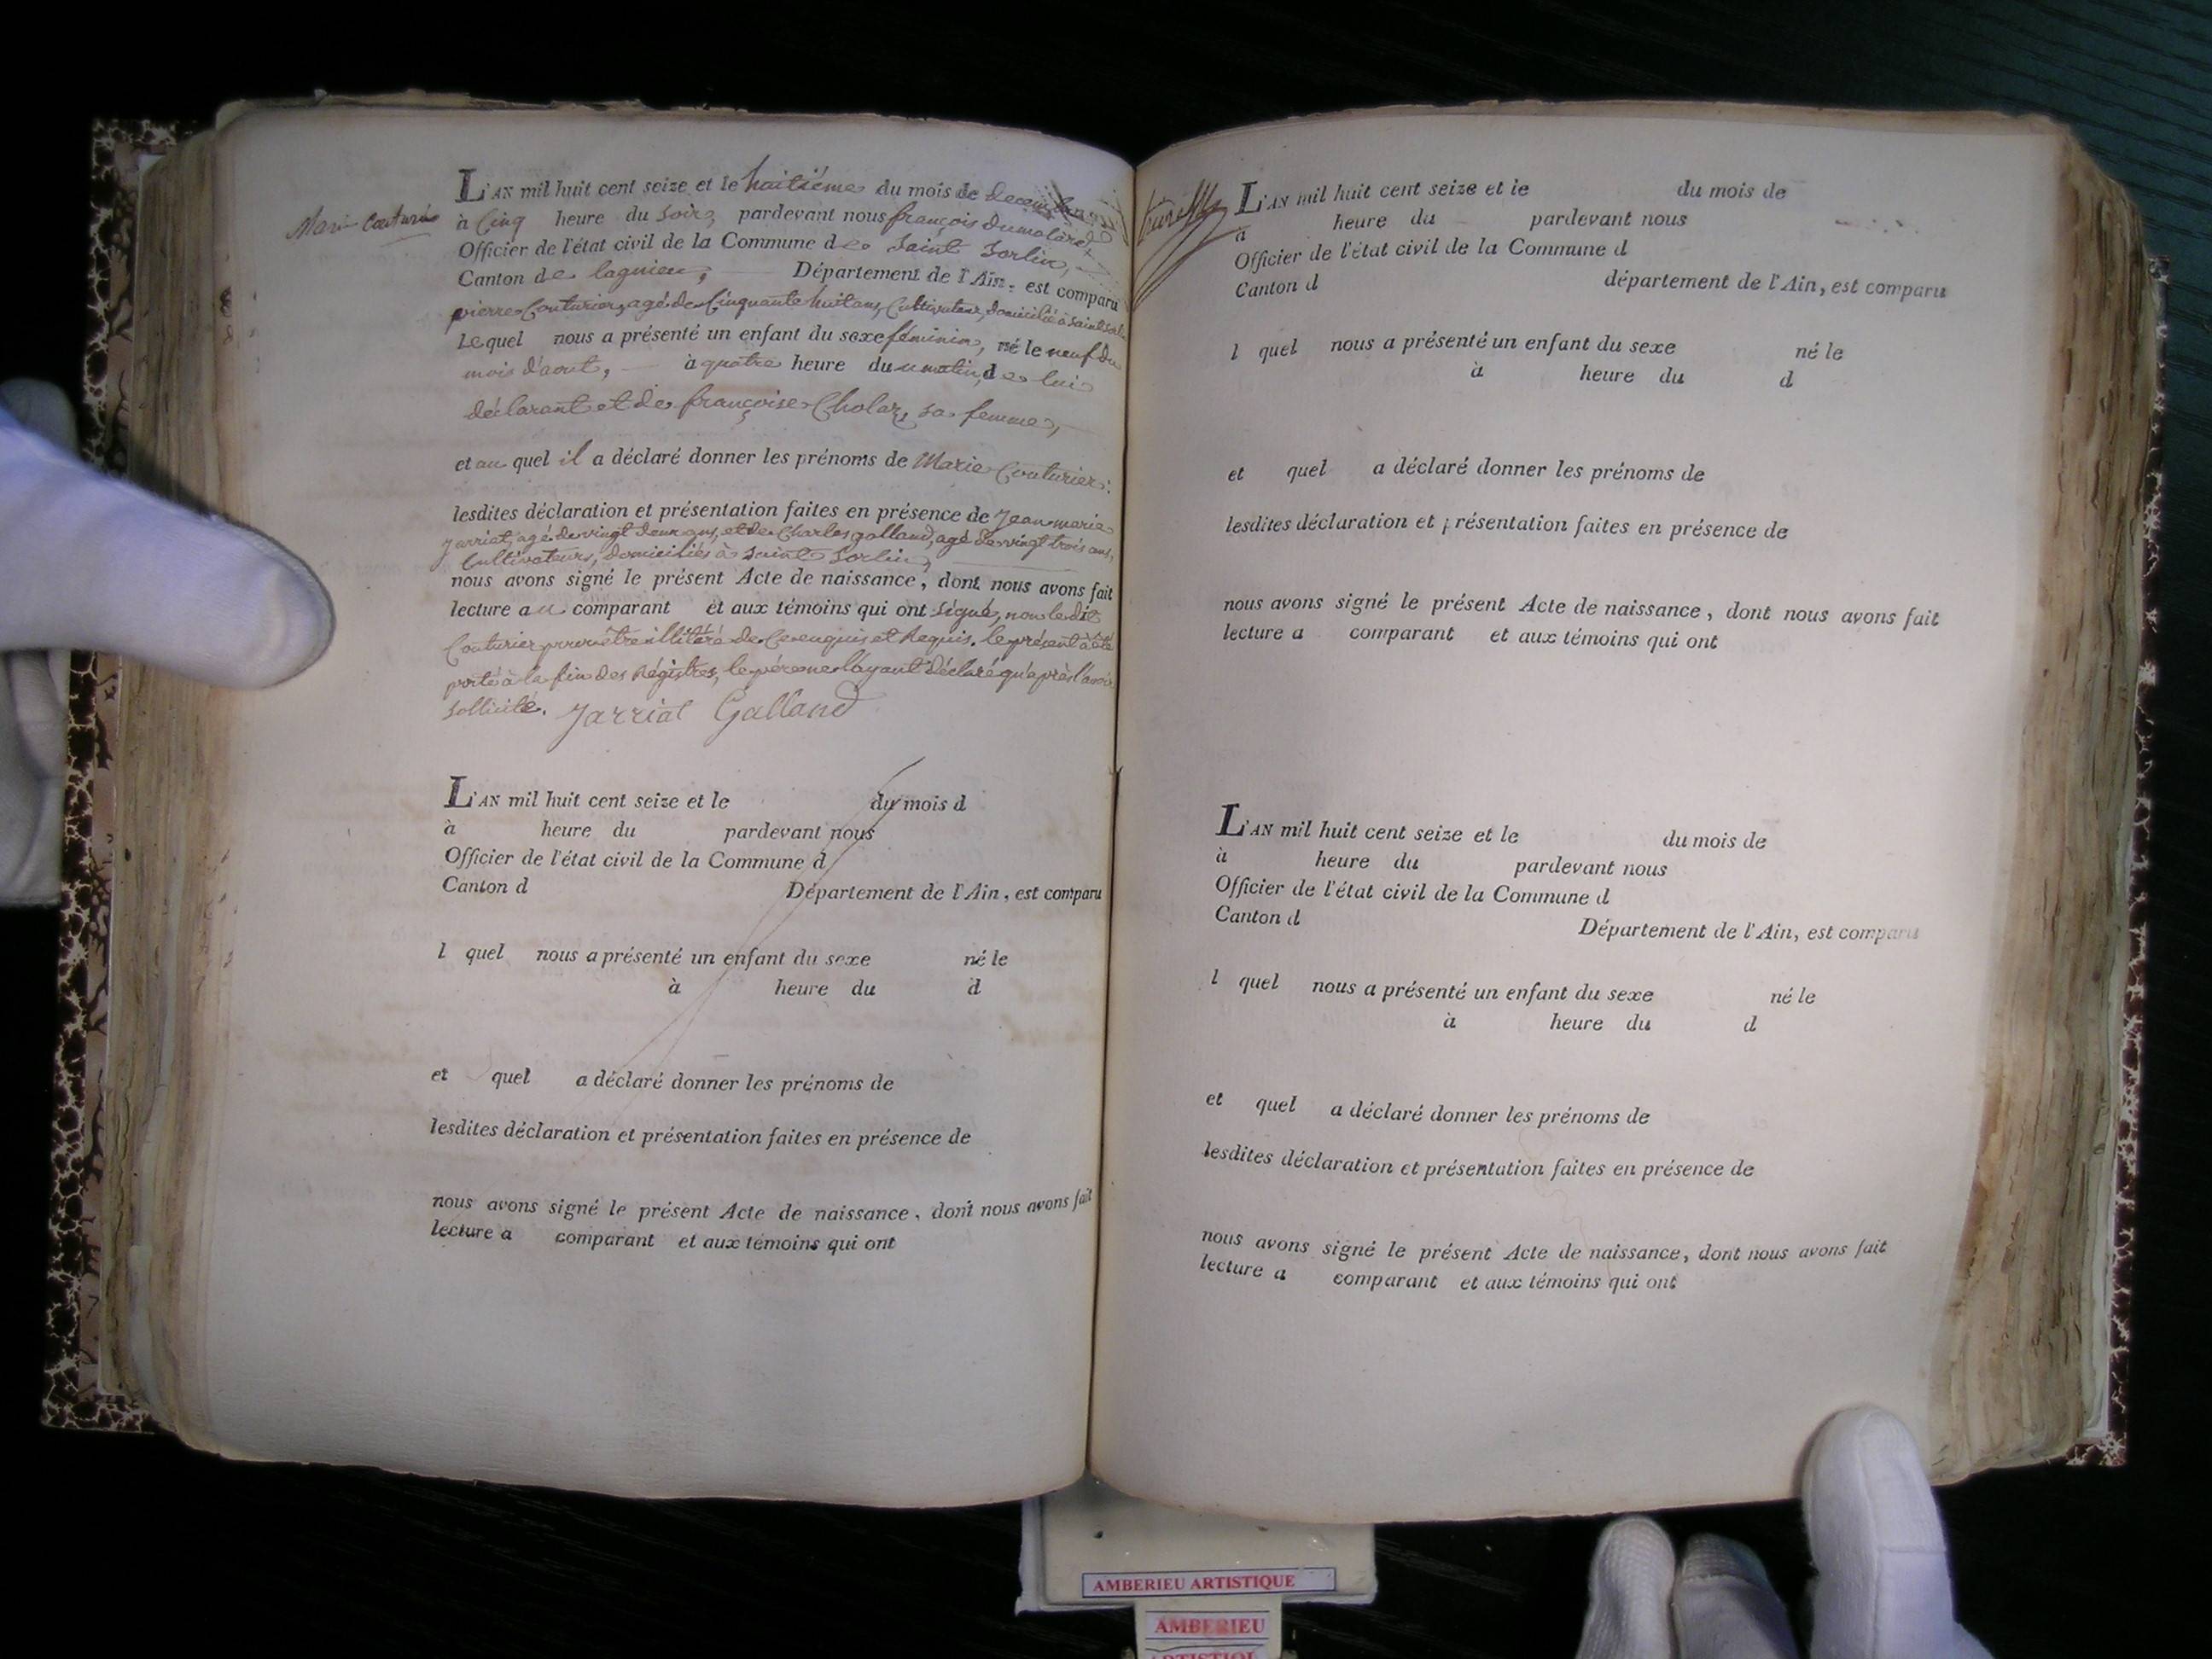 Marie Couturier
L'AN mil huit cent seize et le huitième du mois de Decembre
à Cinq heure du soir, pardevant nous françois dumolard
Officier de l'état civil de la Commune de Saint Sorlin,
Canton de lagnieu, Département de l'Ain, est comparu
pierre Couturier, agé de Cinquante huit ans, Cultivateur, domicilié à saint Sorlin
Lequel nous a présenté un enfant du sexe féminin, né le neuf du
mois d'aout, à quatre heure du matin, de lui
déclarant et de françoise Cholaz, sa femme,
et au quel il a déclaré donner les prénoms de Marie Couturier:
lesdites déclaration et présentation faites en présence de Jean marie
Jarriat, agé de vingt deux ans, et de Charles galland, agé de vingt trois ans,
Cultivateurs, domiciliés à Saint Sorlin,
nous avons signé le présent Acte de naissance, dont nous avons fait
lecture au comparant et aux témoins qui ont signé, non ledit
Couturier pour être illitéré de Ce enquis et Requis. le présent à été
porté à la fin des Régistres, le père ne l'ayant déclaré qu'après l'avoir
sollicité. Jarriat Galland
L'AN mil huit cent seize et le du mois d
à heure du pardevant nous
Officier de l'état civil de la Commune d
Canton d Département de l'Ain, est comparu
l quel nous a présenté un enfant du sexe né le
à heure du d
et quel a déclaré donner les prénoms de
lesdites déclaration et présentation faites en présence de
nous avons signé le présent Acte de naissance, dont nous avons fait
lecture a comparant et aux témoins qui ont
L'AN mil huit cent seize et le du mois de
à heure du pardevant nous
Officier de l'état civil de la Commune d
Canton d département de l'Ain, est comparu
l quel nous a présenté un enfant du sexe né le
à heure du d
et quel a déclaré donner les prénoms de
lesdites déclaration et présentation faites en présence de
nous avons signé le présent Acte de naissance, dont nous avons fait
lecture a comparant et aux témoins qui ont
L'AN mil huit cent seize et le du mois de
à heure du pardevant nous
Officier de l'état civil de la Commune d
Canton d Département de l'Ain, est comparu
l quel nous a présenté un enfant du sexe né le
à heure du d
et quel a déclaré donner les prénoms de
lesdites déclaration et présentation faites en présence de
nous avons signé le présent Acte de naissance, dont nous avons fait
lecture a comparant et aux témoins qui ont
AMBERIEU ARTISTIQUE
AMBERIEU
ARTISTIQUE